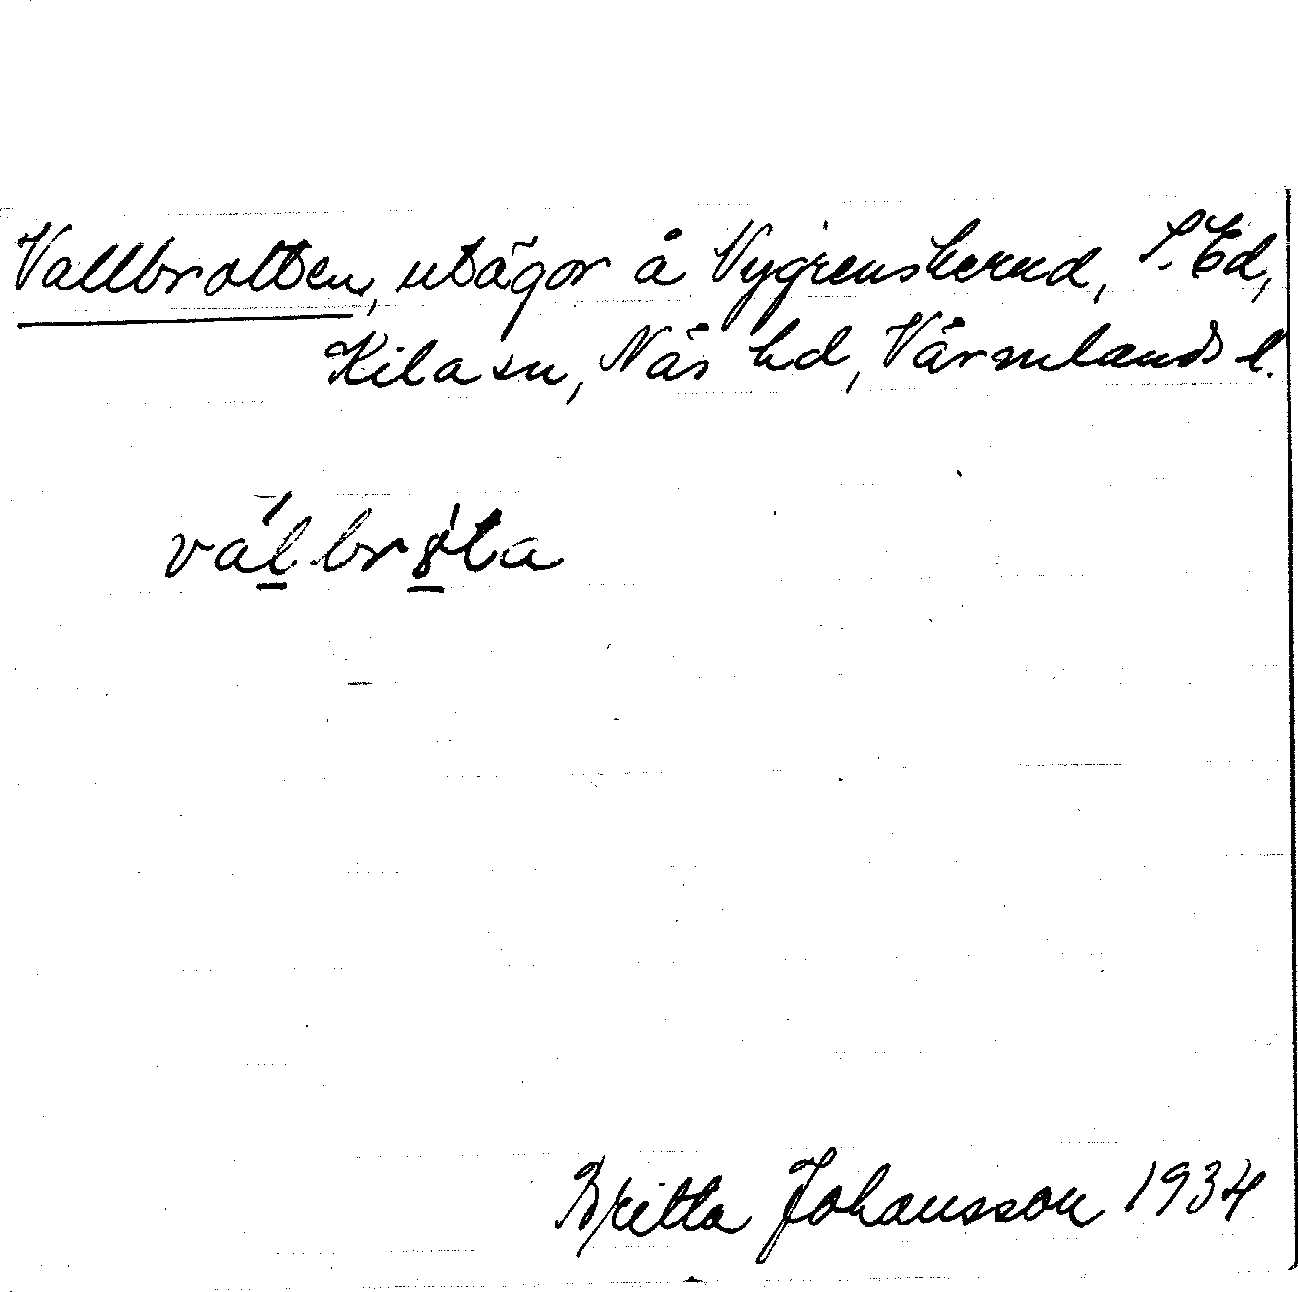 Vallbrotten, utägor å Nygrenskerud, S. Ed,
Kila sn, Näs hd, Värmlands l.
válbrs̀ta
Britta Johansson 1934